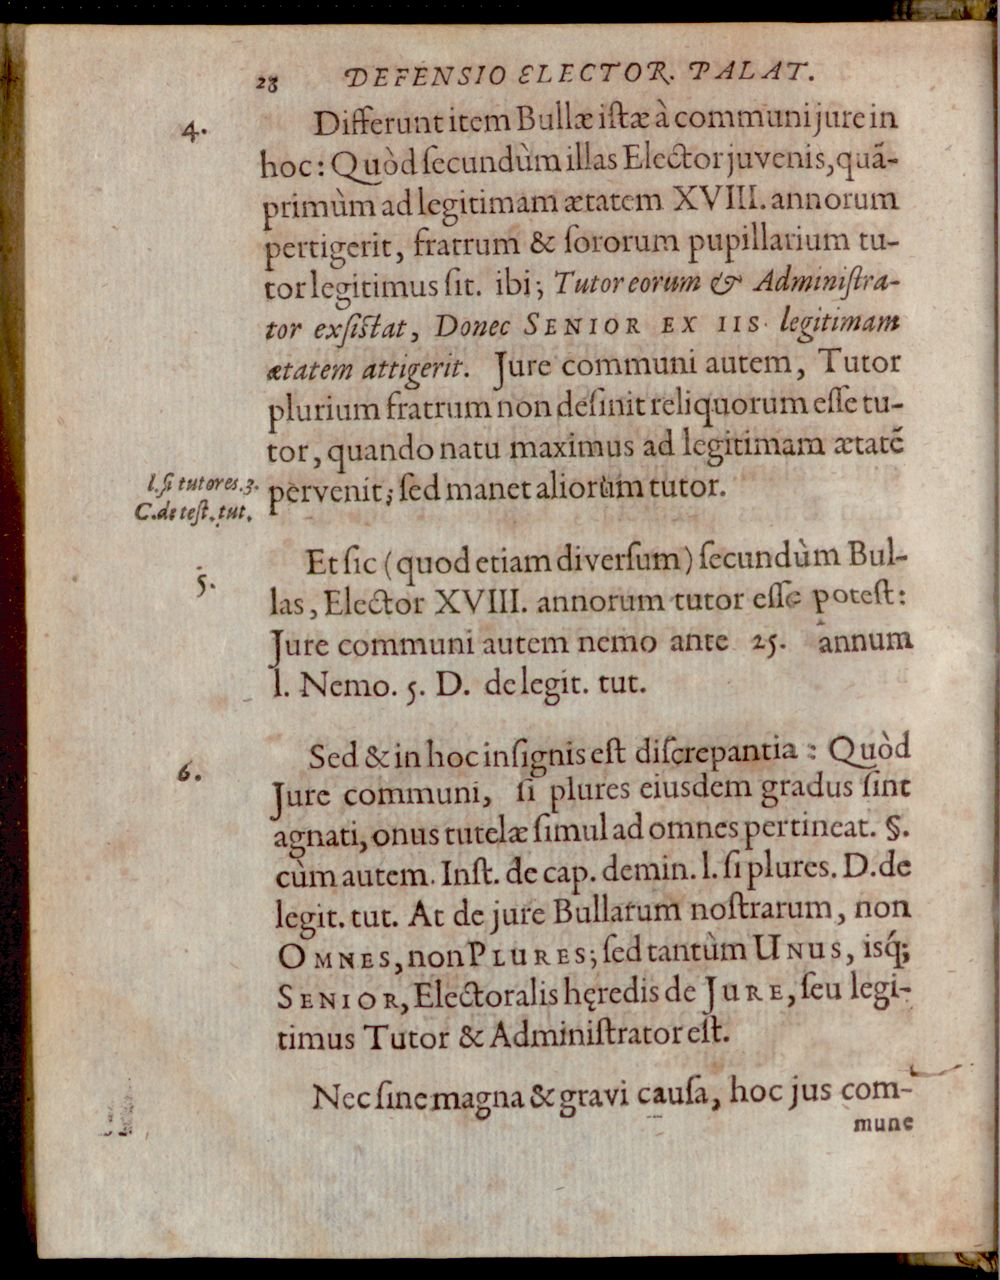 28 DEFENSIO ELECTOR. PALAT.
4. Differunt item Bullæ iſtæ à communi jure in
hoc: Quòd ſecundùm illas Elector juvenis, quã-
primùm ad legitimam ætatem XVIII. annorum
pertigerit, fratrum & ſororum pupillarium tu-
tor legitimus ſit. ibi; Tutor eorum & Adminiſtra-
tor exſiſtat, Donec SENIOR EX IIS legitimam
ætatem attigerit. Jure communi autem, Tutor
plurium fratrum non deſinit reliquorum eſſe tu-
tor, quando natu maximus ad legitimam ætatẽ
l. ſi tutores. 3. pervenit; ſed manet aliorùm tutor.
C. de teſt. tut.
Et ſic (quod etiam diverſum) ſecundùm Bul-
5. las, Elector XVIII. annorum tutor eſſe poteſt:
Jure communi autem nemo ante 25. annum
l. Nemo. 5. D. de legit. tut.
Sed & in hoc inſignis eſt diſcrepantia: Quòd
6. Jure communi, ſi plures eiusdem gradus ſint
agnati, onus tutelæ ſimul ad omnes pertineat. §.
cùm autem. Inſt. de cap. demin. l. ſi plures. D. de
legit. tut. At de jure Bullarum noſtrarum, non
OMNES, non PLURES; ſed tantùm UNUS, isq́;
SENIOR, Electoralis hęredis de JURE, ſeu legi-
timus Tutor & Adminiſtrator eſt.
Nec ſine magna & gravi cauſa, hoc jus com-
mune